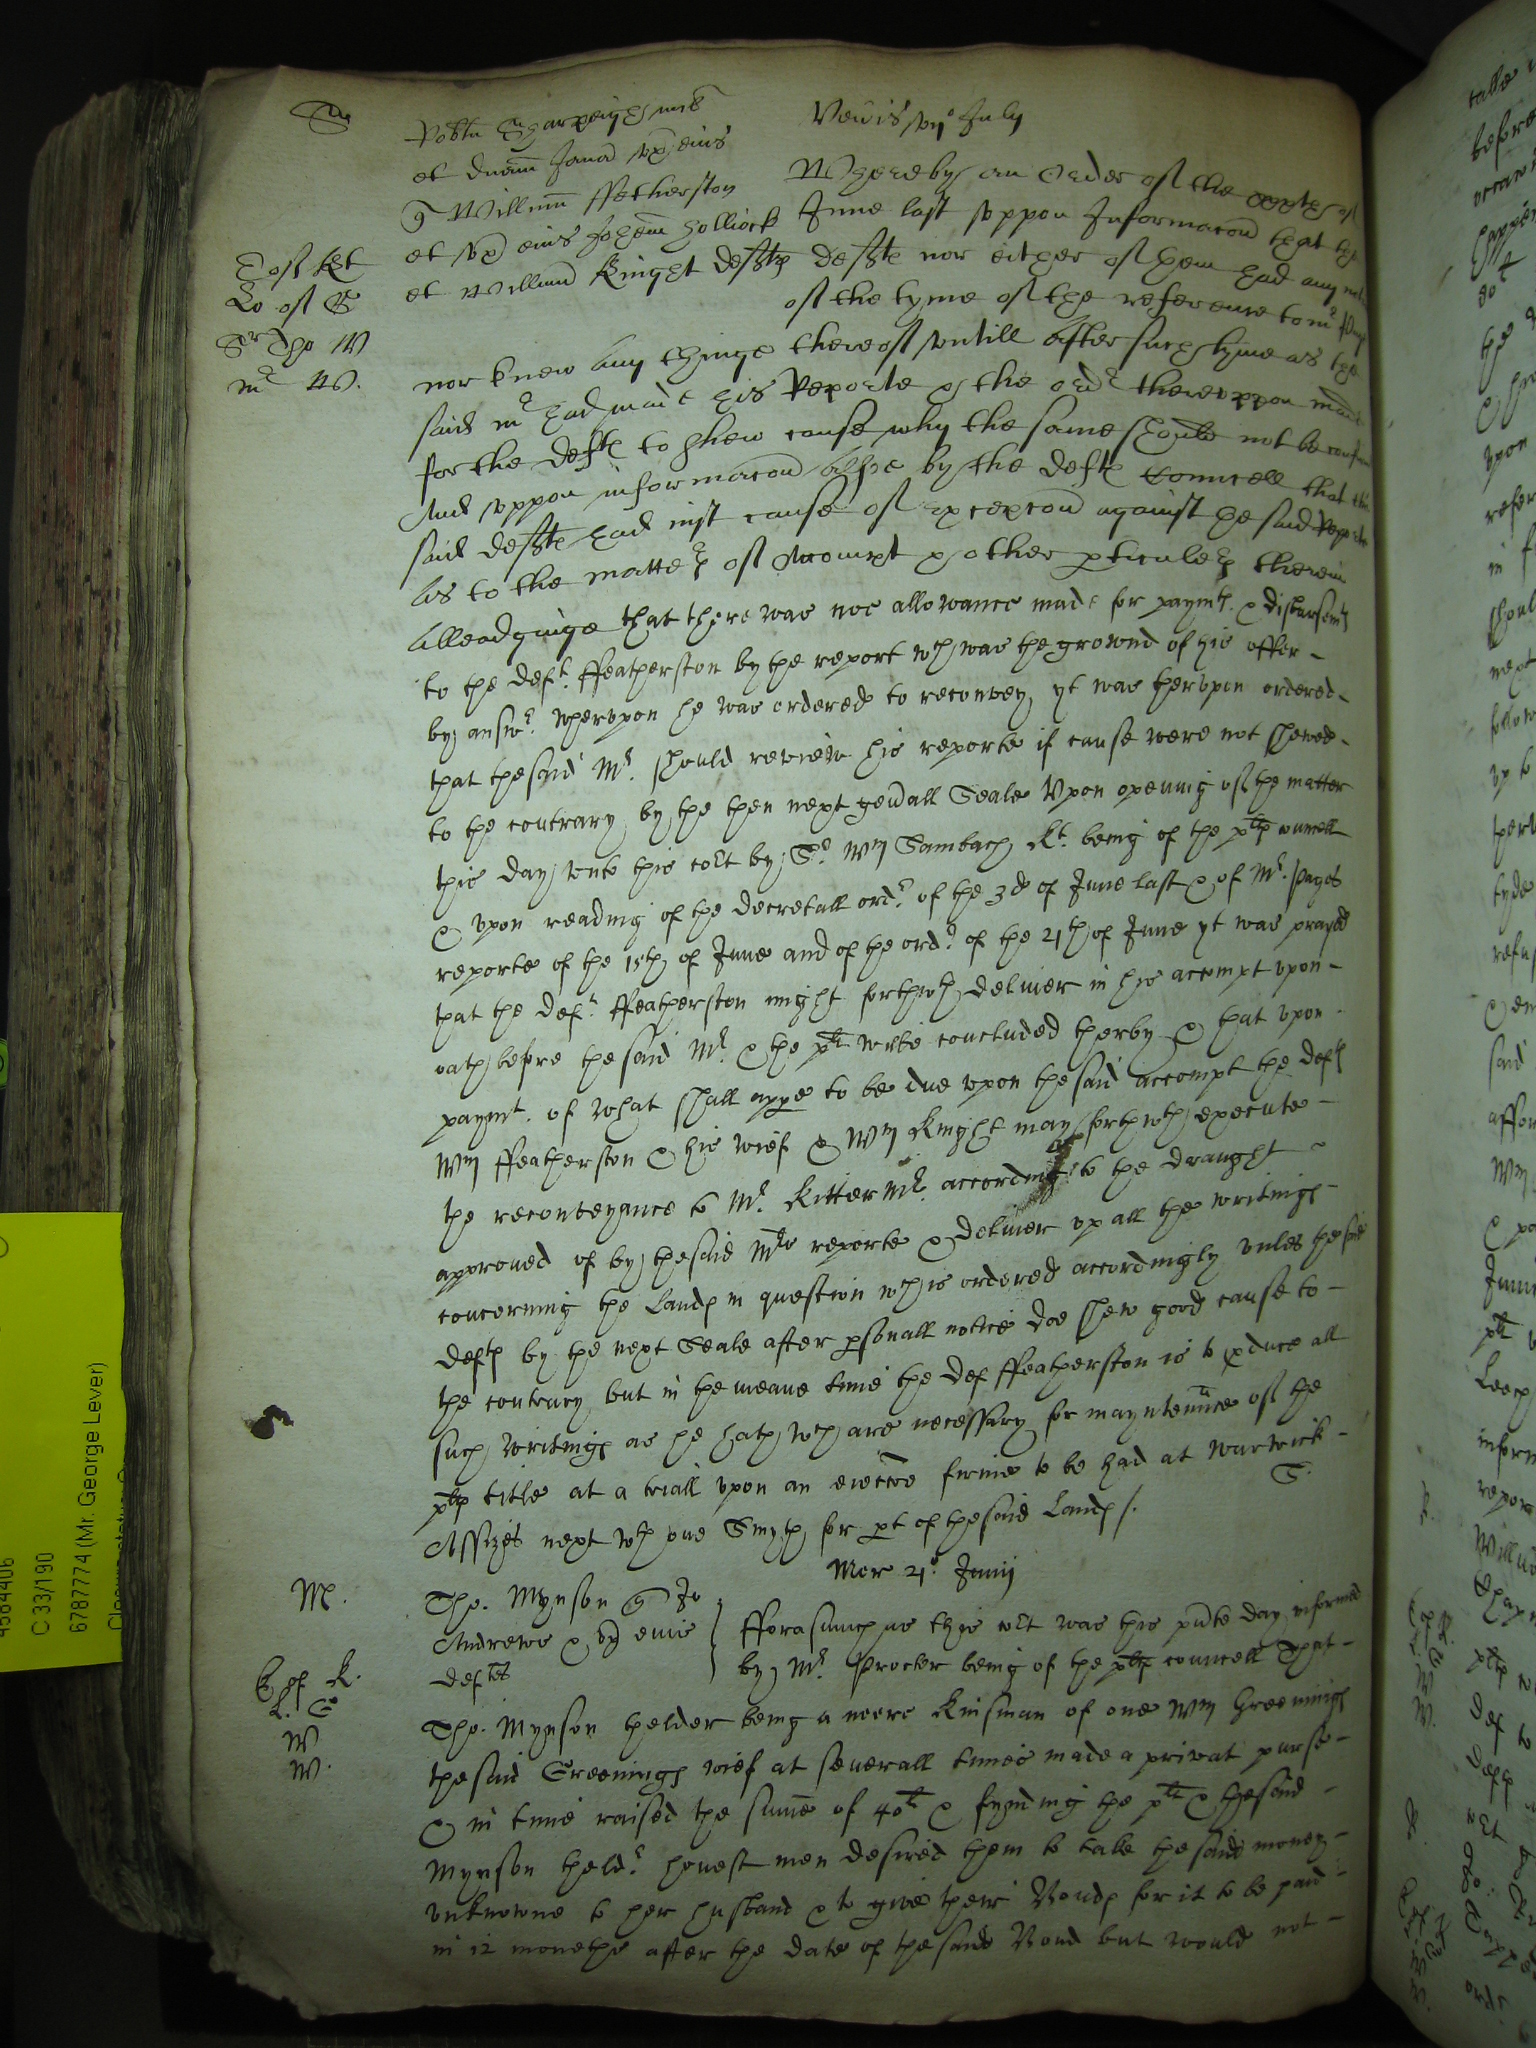 Veneris vijo July
Robtu Sharpeigh
et dnam Janā vx eius
Whereby an Order of the xxxth of
q Willimu ffetherston
June last vppon Informacon that the
et vx eius Johem Holliock
et Willimū Knight defts defts nor either of them had any
of the tyme of the reference to mr Page
E of Kt
Lo of C
Sr Tho W
mr W.
nor knew any thinge thereof vntill after such tyme as the
said mr had made his Reporte & the ordr therevppon made
for the defts to shew cause why the same should not be
And vppon informacon alsoe by the defts Councell that the
said defts had iust cause of excepcon against the said Reporte
as to the mattrs of Accompt & other pticulers therein
Alleadginge that there was noe allowance made for paymts. & disbursemts
to the deft. ffeatherston by the report wch was the grownd of his offer -
by answr. Whervpon he was ordered to reconvey, yt was thervpon ordered -
that the said Mr. should review his reporte if cause were not shewed -
to the contrary by the then next genall Seale Vpon opening of the matter
this day vnto this colt by Sr. Wm Sambach Kt. being of the plts councell
& vpon reading of the decretall ordr. of the 3d of June last & of Mr. Pages
reporte of the 15th of June and of the ordr. of the 21th of June yt was prayed
that the deft. ffeatherston might forthwth deliver in his accompt vpon -
oath before the said Mr. & the plt wilbe concluded therby & that vpon
paymt. of what shall appe to be due vpon the said accompt the defts
Wm ffeatherston & his wief & Wm Knight may forthwth execute -
the reconveyance to Mr. Kitter Mr. according to the draught -
approved of by the said Mrs reporte & deliver vp all the writings -
concerning the Lands in question wch is ordered accordingly vnles the said
defts by the next Seale after psonall notice doe shew good cause to -
the contrary but in the meane time the def ffeatherston is to pduce all
such writings as he hath wch are necessary for mayntennce of the
plts title at a triall vpon an eiectōe firme to be had at Warwick -
Assizes next wth one Smyth for pt of the said Lands /.
S.
Mer 21o. Junij
M.
Tho. Mynson q Jo
Andrewes & vx eius
defts
fforasmuch as this colt was this pnte day informed
by Mr. Procter being of the plts councell That -
E of K.
L. C
W
W.
Tho. Mynson thelder being a neere kinsman of one Wm Greenings
the said Greenings wief at severall times made a privat purse -
& in time raised the sume of 40li & fynding the plt & the said -
Mynson theldr. honest men desired them to take the said money -
vnknowne to her husband & to give their Bonds for it to be paid -
in 12 moneths after the date of the said Bond but would not -
C 33/190
6787774 (Mr. George Lever)